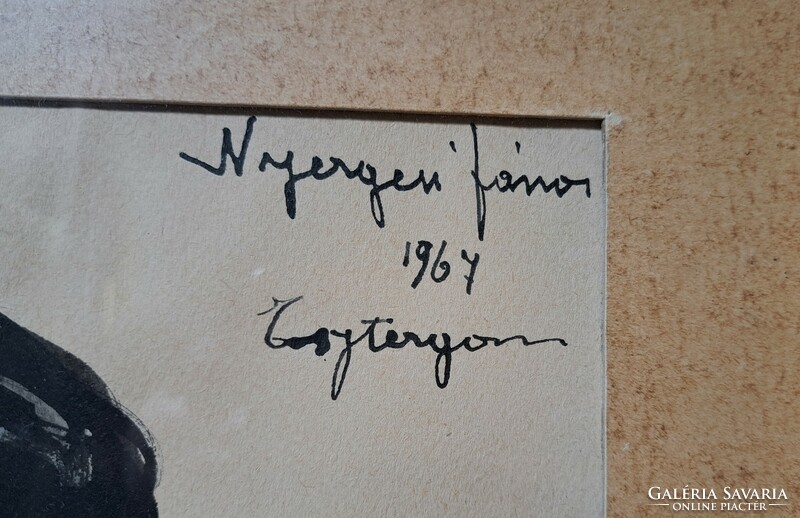 Nyergesi János
1967
Esztergom
GALÉRIA SAVARIA
ONLINE PIACTÉR